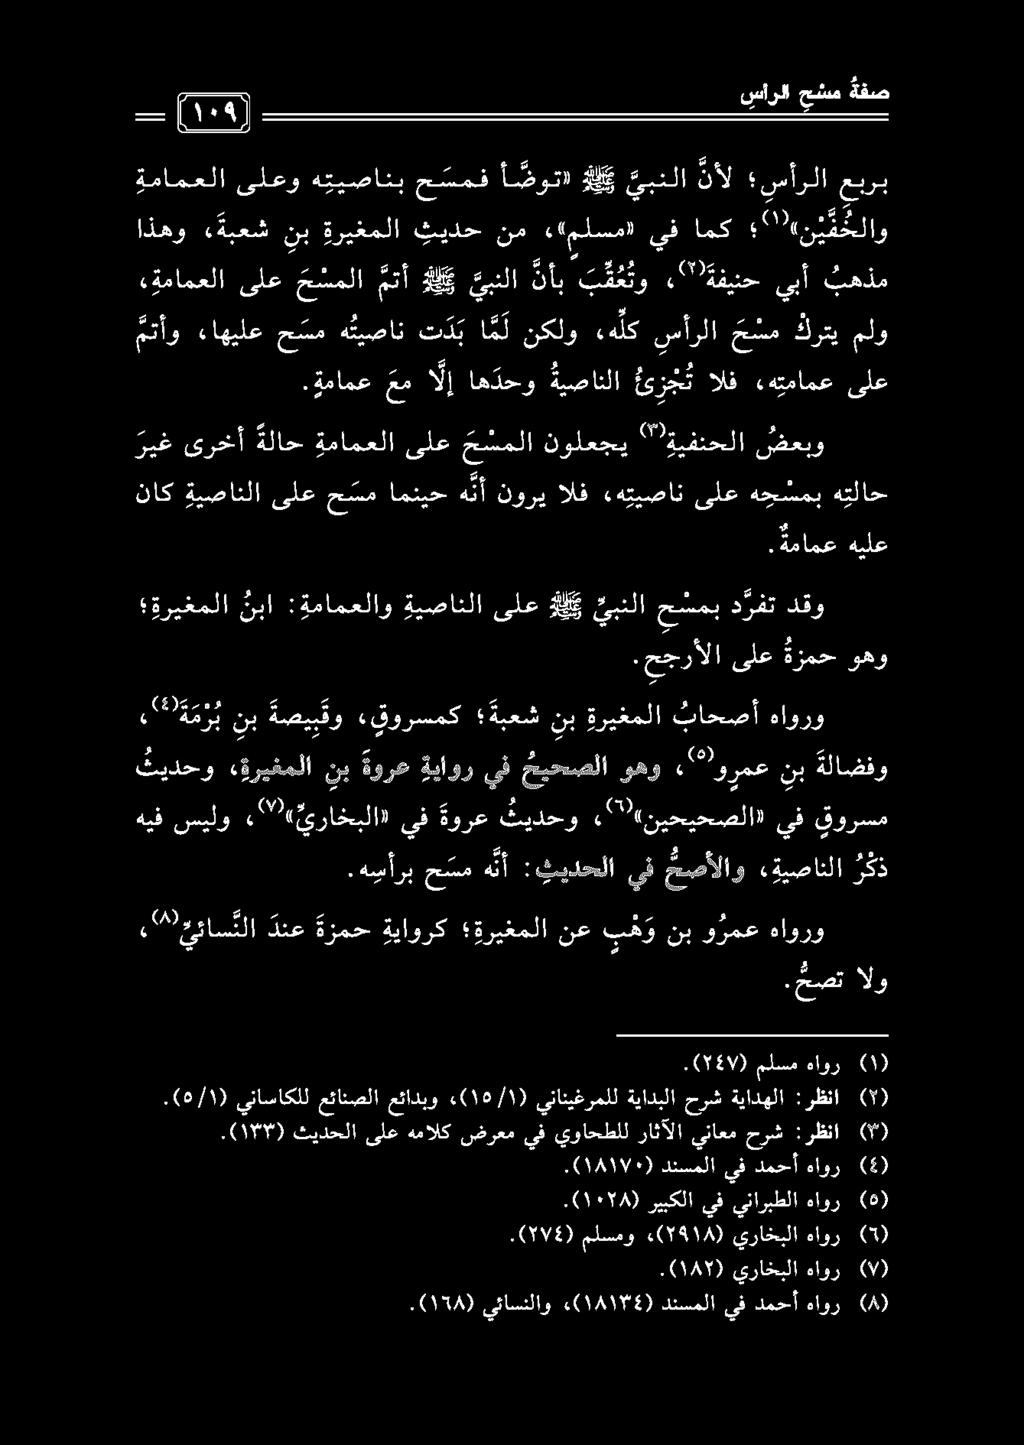 صفةُ مسْحِ الرأسِ
١٠٩
بربعِ الرأسِ؛ لأنَّ النبيَّ ﷺ «توضَّأ فمسَح بناصيتِه وعلى العمامةِ
والخُفَّيْن»(١)؛ كما في «مسلمٍ»، من حديثِ المغيرةِ بنِ شعبةَ، وهذا
مذهبُ أبي حنيفةَ(٢)، وتُعُقِّبَ بأنَّ النبيَّ ﷺ أتمَّ المسْحَ على العمامةِ،
ولم يتركْ مسْحَ الرأسِ كلِّه، ولكن لَمَّا بَدَت ناصيتُه مسَح عليها، وأتمَّ
على عمامتِه، فلا تُجْزِئُ الناصيةُ وحدَها إلَّا معَ عمامةٍ.
وبعضُ الحنفيةِ(٣) يجعلون المسْحَ على العمامةِ حالةً أخرى غيرَ
حالتِه بمسْحِه على ناصيتِه، فلا يرون أنَّه حينما مسَح على الناصيةِ كان
عليه عمامةٌ.
وقد تفرَّد بمسْحِ النبيِّ ﷺ على الناصيةِ والعمامةِ: ابنُ المغيرةِ؛
وهو حمزةُ على الأرجحِ.
ورواه أصحابُ المغيرةِ بنِ شعبةَ؛ كمسروقٍ، وقَبِيصةَ بنِ بُرْمَةَ(٤)،
وفضالةَ بنِ عمرٍو(٥)، وهو الصحيحُ في روايةِ عروةَ بنِ المغيرةِ، وحديثُ
مسروقٍ في «الصحيحين»(٦)، وحديثُ عروةَ في «البخاريِّ»(٧)، وليس فيه
ذكْرُ الناصيةِ، والأصحُّ في الحديثِ: أنَّه مسَح برأسِه.
ورواه عمرُو بن وَهْبٍ عن المغيرةِ؛ كروايةِ حمزةَ عندَ النَّسائيِّ(٨)،
ولا تصحُّ.
(١) رواه مسلم (٢٤٧).
(٢) انظر: الهداية شرح البداية للمرغيناني (١/ ١٥)، وبدائع الصنائع للكاساني (١/ ٥).
(٣) انظر: شرح معاني الآثار للطحاوي في معرض كلامه على الحديث (١٣٣).
(٤) رواه أحمد في المسند (١٨١٧٠).
(٥) رواه الطبراني في الكبير (١٠٢٨).
(٦) رواه البخاري (٢٩١٨)، ومسلم (٢٧٤).
(٧) رواه البخاري (١٨٢).
(٨) رواه أحمد في المسند (١٨١٣٤)، والنسائي (١٦٨).